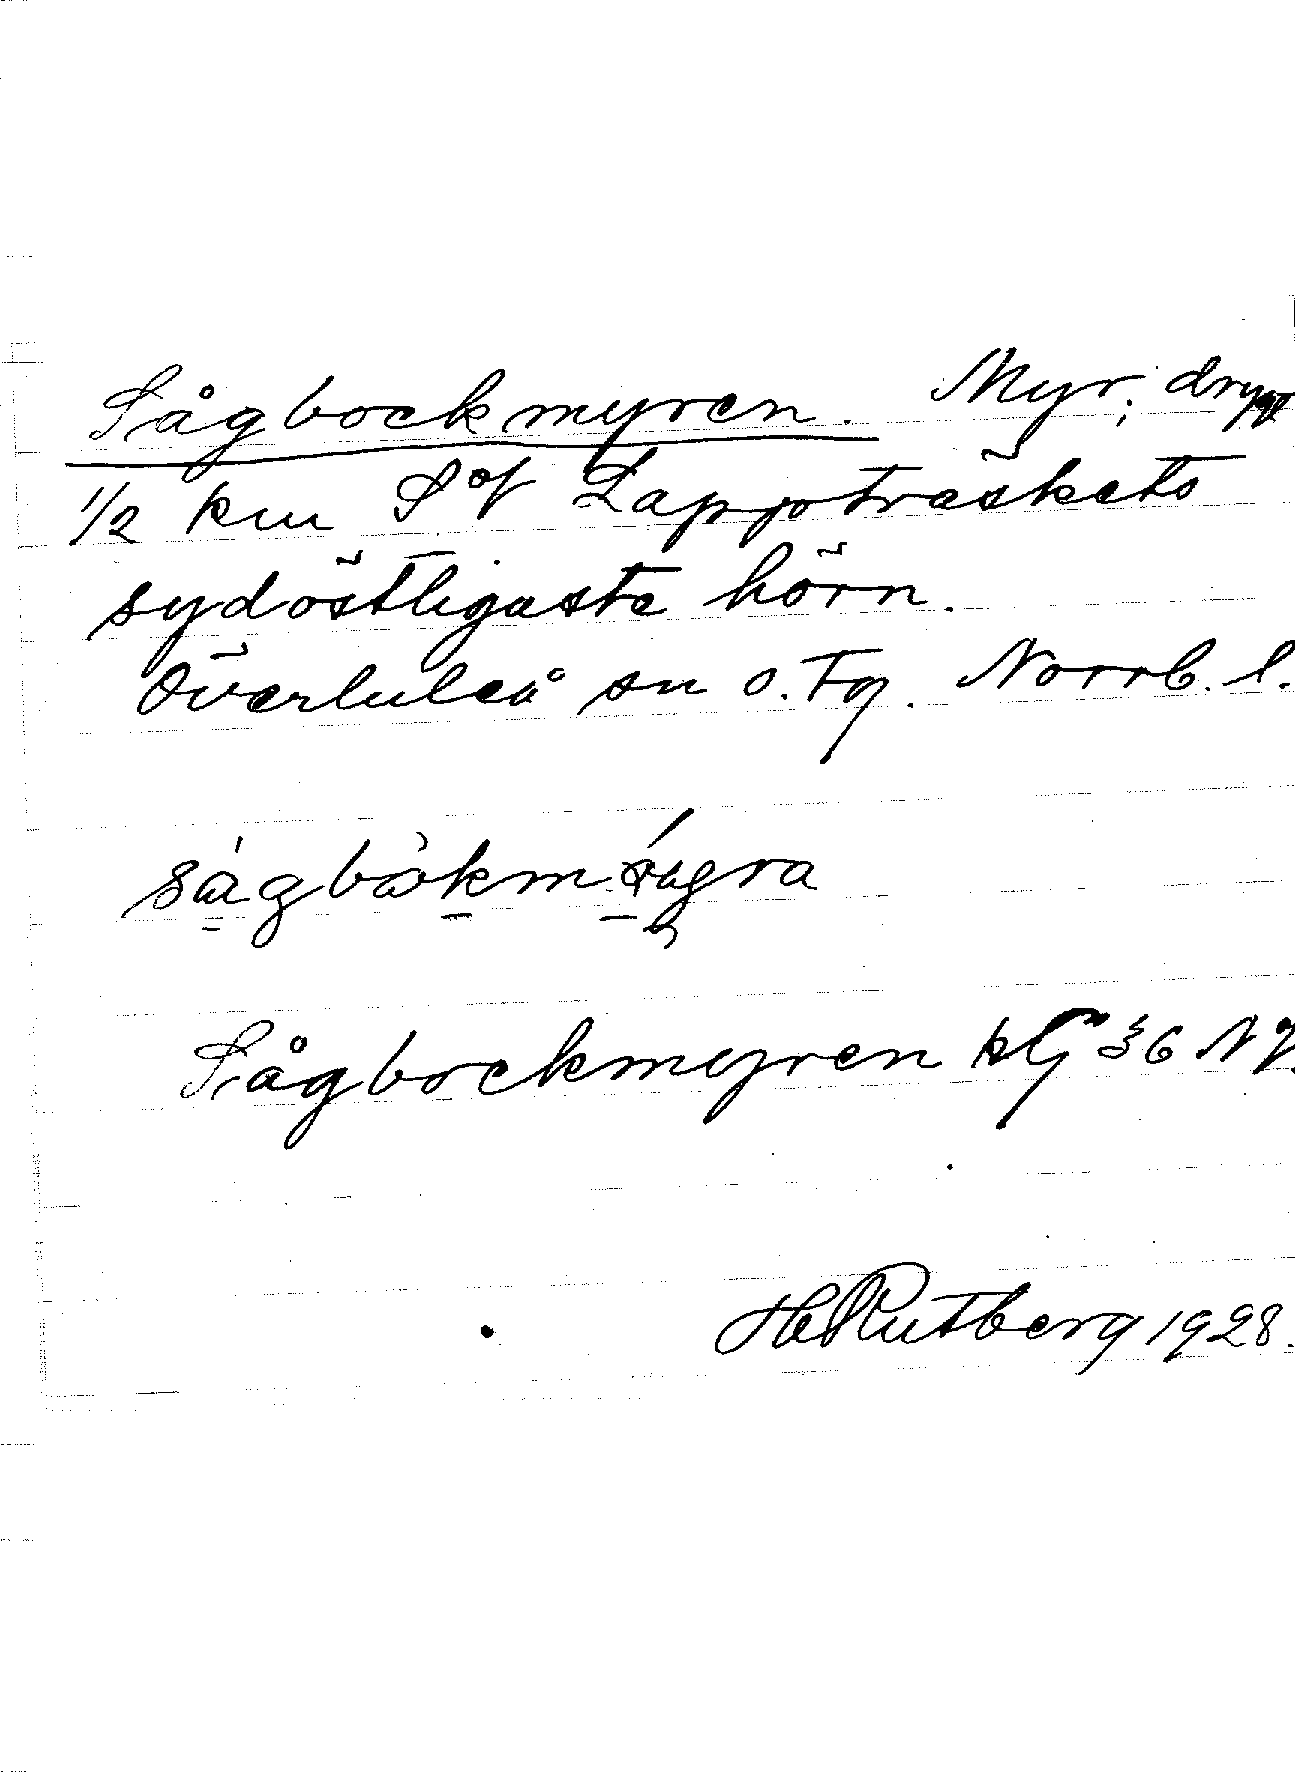 Sågbockmyren. Myr; drygt
1/2 km S of Lappträskets
sydöstligaste hörn.
Överluleå sn o. tg. Norrb. l.
Sågbockmyren
HRutberg 1928.